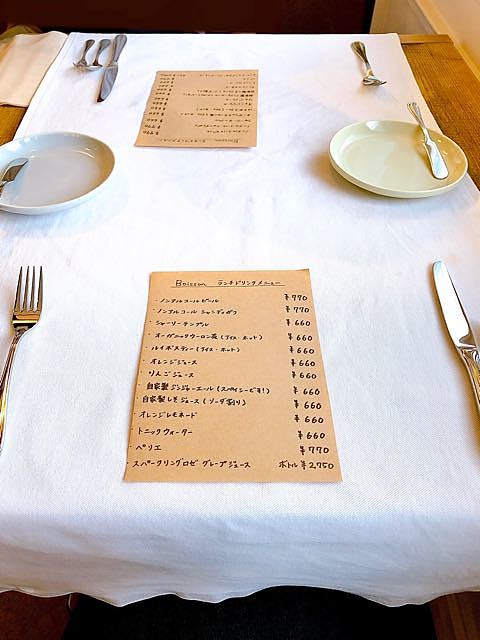 Boisson ランチドリンクメニュー
・ノンアルコールビール ¥770
・ノンアルコール シャンディガフ ¥770
・シャーリーテンプル ¥660
・オーガニックウーロン茶(アイス・ホット) ¥660
・ルイボスティー(アイス・ホット) ¥660
・オレンジジュース ¥660
・りんごジュース ¥660
・自家製ジンジャーエール(スパイシーピキ!) ¥660
・自家製しそジュース(ソーダ割り) ¥660
・オレンジレモネード ¥660
・トニックウォーター ¥660
・ペリエ ¥770
・スパークリングロゼ グレープジュース ボトル ¥2,750